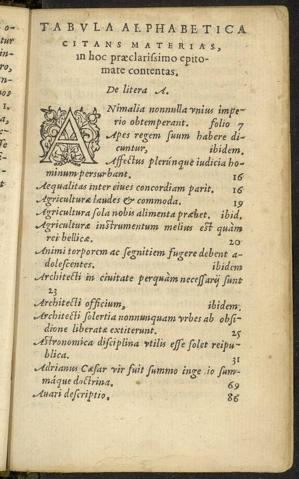 TABVLA ALPHABETICA
CITANS MATERIAS,
in hoc præclarissimo epito-
mate contentas.
De litera A.
ANimalia nonnulla vnius impe-
rio obtemperant. folio 7
Apes regem suum habere di-
cuntur, ibidem.
Affectus plerúnque iudicia ho-
minum persurbant. 16
Aequalitas inter eiues concordiam parit. 16
Agriculturæ laudes & commoda. 19
Agricultura sola nobis alimenta præbet. ibid.
Agriculturæ instrumentum melius est quàm
rei bellicæ. 20
Animi torporem ac segnitiem fugere debent a-
dolescentes. ibidem
Architecti in ciuitate perquàm necessarij sunt
23
Architecti officium, ibidem.
Architecti solertia nonnunquam vrbes ab obsi-
dione liberatæ extiterunt. 25
Astronomica disciplina vtilis esse solet reipu-
blica. 31
Adrianus Cæsar vir fuit summo inge io sum-
máque doctrina. 69
Auari descriptio. 86